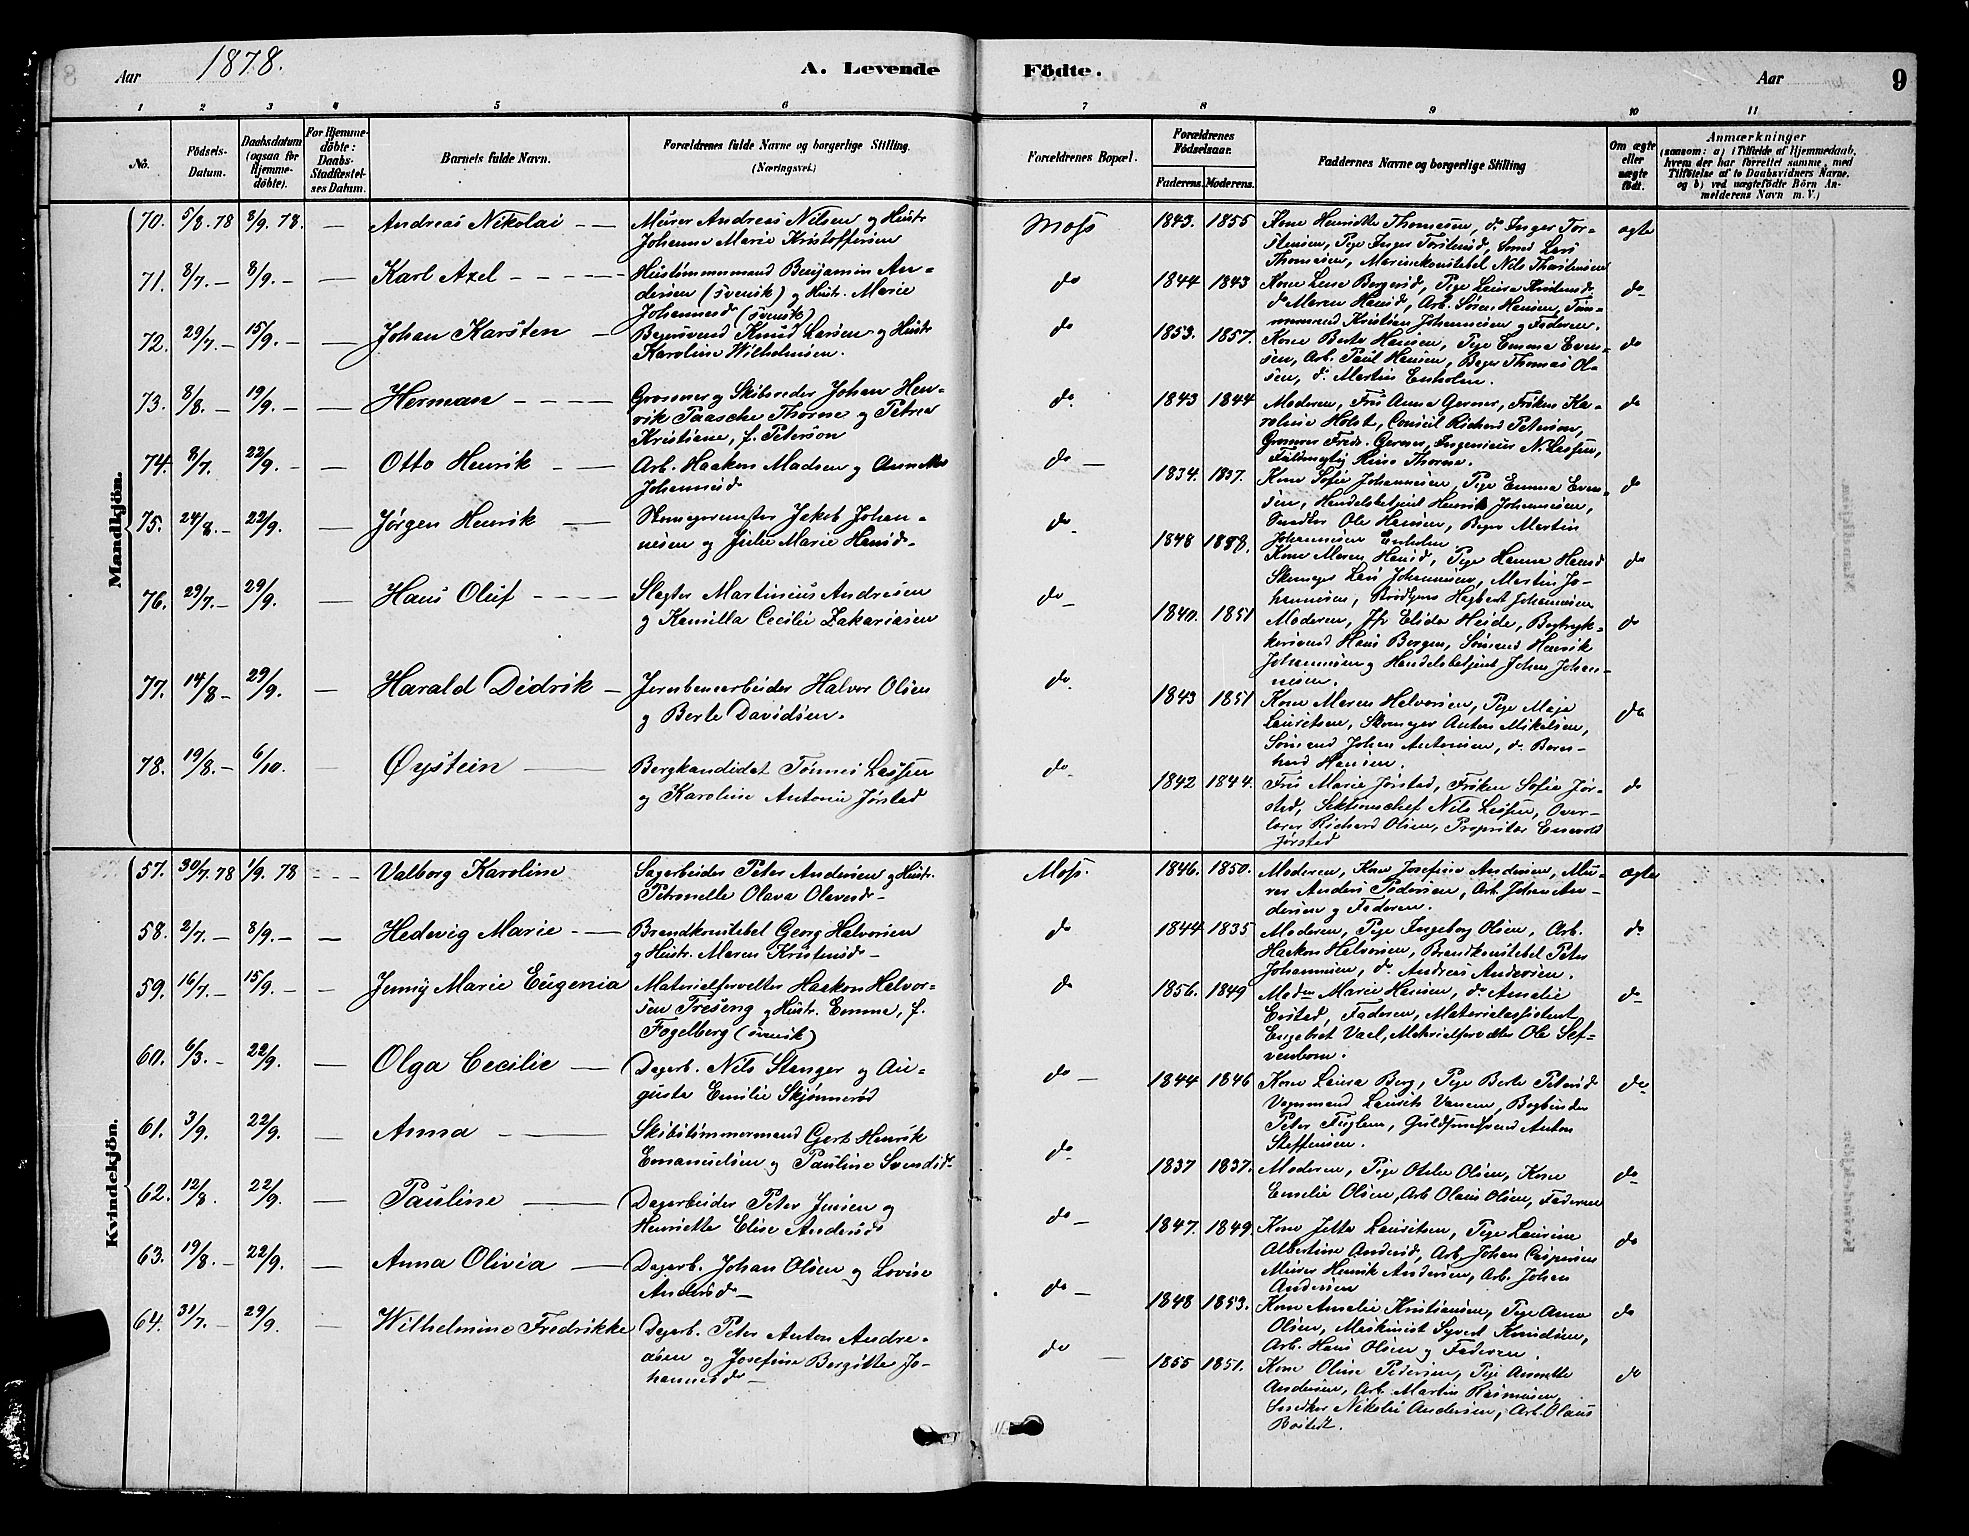 Aar 1878. A. Levende Födte. Aar 9
1 2 3 4 5 6 7 8 9 10 11
No.
Födsels-Datum.
Daabsdatum (ogsaa for Hjemmedöbte).
For Hjemmedöbte: Daabs-Stadfæstelses Datum.
Barnets fulde Navn.
Forældrenes fulde Navne og borgerlige Stilling. (Næringsvei.)
Forældrenes Bopæl.
Forældrenes Födselsaar.
Faderens. Moderens.
Faddernes Navne og borgerlige Stilling
Om ægte eller uægte födt.
Anmærkninger
(saasom: a) i Tilfælde af Hjemmedaab, hvem der har forrettet samme, med Tilföielse af to Daabsvidners Navne. og b) ved uægtefödte Börn Anmelderens Navn m. V.)
Mandkjön.
70. 5/8. 78 8/9. 78. — Andreas Nikolai — Murer Andreas Nilsen og Hustr
Johanne Marie Kristoffersen
Moss 1843. 1855 Kone Henriette Thomesen, do Inger Tor-
stensen, Pige Inger Torstensd, Sømd Lars
Thomesen, Marinekonstebel Nils Thorstensen
ægte
71. 8/7. — 8/9. — — Karl Axel — Hustømmermand Benjamin An-
dersen (svensk) og Hustr. Marie
Johannesd (svensk)
do 1844 1843 Kone Lise Bergersd, Pige Laura Kristensd
do Maren Hansd, Arb. Søren Hansen, Tøm-
mermand Kristian Johannesen og Faderen.
do
72. 29/7. — 15/9. — — Johan Karsten — Bagersvend Knud Larsen og Hustr
Karoline Wilhelmsen.
do 1853. 1857. Kone Berte Hansen, Pige Emma Even-
sen, Arb. Paul Hansen, Bager Thomas Ol-
sen, do Martin Enholm.
do
73. 8/8. — 19/9. — — Herman — Grosserer og Skibsreder Johan Hen-
rik Paasche Thorne og Petra
Kristiane, f. Peterson
do 1843 1844 Moderen, Fru Anna Gerner, Frøken Ka-
roline Holst, Consul Richard Peterson,
Grosserer Fredr. Gerner, Ingeniør N. Lassen,
Fuldmægtig Thorne.
do
74. 8/7. 22/9. — — Otto Henrik — Arb. Haakon Madsen og Anne
Johannesd
do — 1834. 1837. Kone Sofie Johannesen, Pige Emma Even-
sen, Handelsbetjent Henrik Johannesen,
Snedker Ole Hansen, Bager Martin
Johannesen Enholm
do
75. 24/8. — 22/9. — Jørgen Henrik — Skomagermester Jakob Johan-
nesen og Julie Marie Hansd.
do 1848 1858. Kone Maren Hansd, Pige Hanna Hansd
Skomager Lars Johannesen, Martin Jo-
hannesen, Hagbart Johannesen
do
76. 29/7. — 29/9. — Hans Oluf — Slagter Martinius Andresen
og Kamilla Cecilie Zakariasen
do 1840. 1851 Moderen, Jfr Elida Heide, Bogtryk-
kersvend Hans Bergen, Sømand Henrik
Johannesen og Handelsbetjent Johan Johan-
nesen.
do
77. 14/8 — 29/9. — Harald Didrik — Jernbanearbeider Halvor Olsen
og Berte Davidsen.
do 1843 1851 Kone Maren Halvorsen, Pige Maja
Lauritsen, Skomager Anton Mikelsen,
Sømand Johan Antonsen, do Bern-
hard Hansen.
do
78. 19/8. — 6/10. — Øystein — Bergkandidat Tønnes Lassen
og Karoline Antonie Jørstad
do 1842 1844. Fru Marie Jørstad, Frøken Sofie Jør-
stad, Sektionschef Nils Lassen, Over-
lærer Richard Olsen, Proprietær Enevold
Jørstad
do
Kvindekjön.
57. 30/7. 78 1/9. 78 — Valborg Karoline Sagarbeider Peter Andersen og Hustr.
Petronelle Olava Olavesd.
Moss. 1846. 1850. Moderen, Kone Josefine Andersen, Mu-
rer Anders Pedersen, Arb. Johan An-
dersen og Faderen.
ægte
58. 2/7. — 8/9. — — Hedevig Marie — Brandkonstebel Georg Halvorsen
og Hustr. Maren Kristensd.
do 1844 1835 Moderen, Pige Ingeborg Olsen, Arb.
Haakon Halvorsen, Brandkonstebel Peter
Johannesen, do Andreas Andersen.
do
59. 16/7. — 15/9. — — Jenny Marie Eugenia Materialforvalter Haakon Halvor-
sen Treseng og Hustr. Emma, f.
Fagelberg (svensk)
do 1856. 1849 Madm Marie Hansen, do Amalie
Faderen, Materialassistent
Engebret Materialforvalter Ole
do
60. 6/3. — 22/9. — Olga Cecilie — Dagarb. Nils Stanger og Au-
gusta Emilie Skjønnerød
do — 1844 1846 Kone Laura Berg, Pige Berte Petersd
Vognmand Laurits Vansem, Bogbinder
Peter Fuglem, Guldsmedsvend Anton
Steffensen.
do
61. 3/9. 22/9. — Anna — Skibstømmermand Gert Henrik
Emanuelsen og Pauline Svendsd.
do 1837 1837. Moderen, Pige Otilie Olsen, Kone
Emelie Olsen, Arb Olaus Olsen, Faderen
do
62. 12/8. 22/9. — Pauline — Dagarbeider Peter Jensen og
Henriette Elise Andersd
do — 1847. 1849. Kone Jette Lauritsen, Pige Laurine
Albertine Andersd, Arb. Johan Caspersen
Murer Henrik Andersen, Arb. Johan
Andersen
do
63. 19/8. — 22/9. — Anna Olivia — Dagarb. Johan Olsen og Lovise
Andersd —
do — 1848 1853. Kone Amalie Kristiansen, Pige Anna
Olsen, Maskinist Syvert Knudsen,
Arb. Hans Olsen og Faderen
do
64. 31/7. — 29/9. — Wilhelmine Fredrikke Dagarb. Peter Anton Andre-
asen og Josefine Bergitte Jo-
hannesd —
do — 1855 1851. Kone Oline Pedersen, Pige Annette
Andersen, Arb. Martin Rasmusen,
Snedker Nikolai Andersen, Arb. Olaus
Bostedt.
do